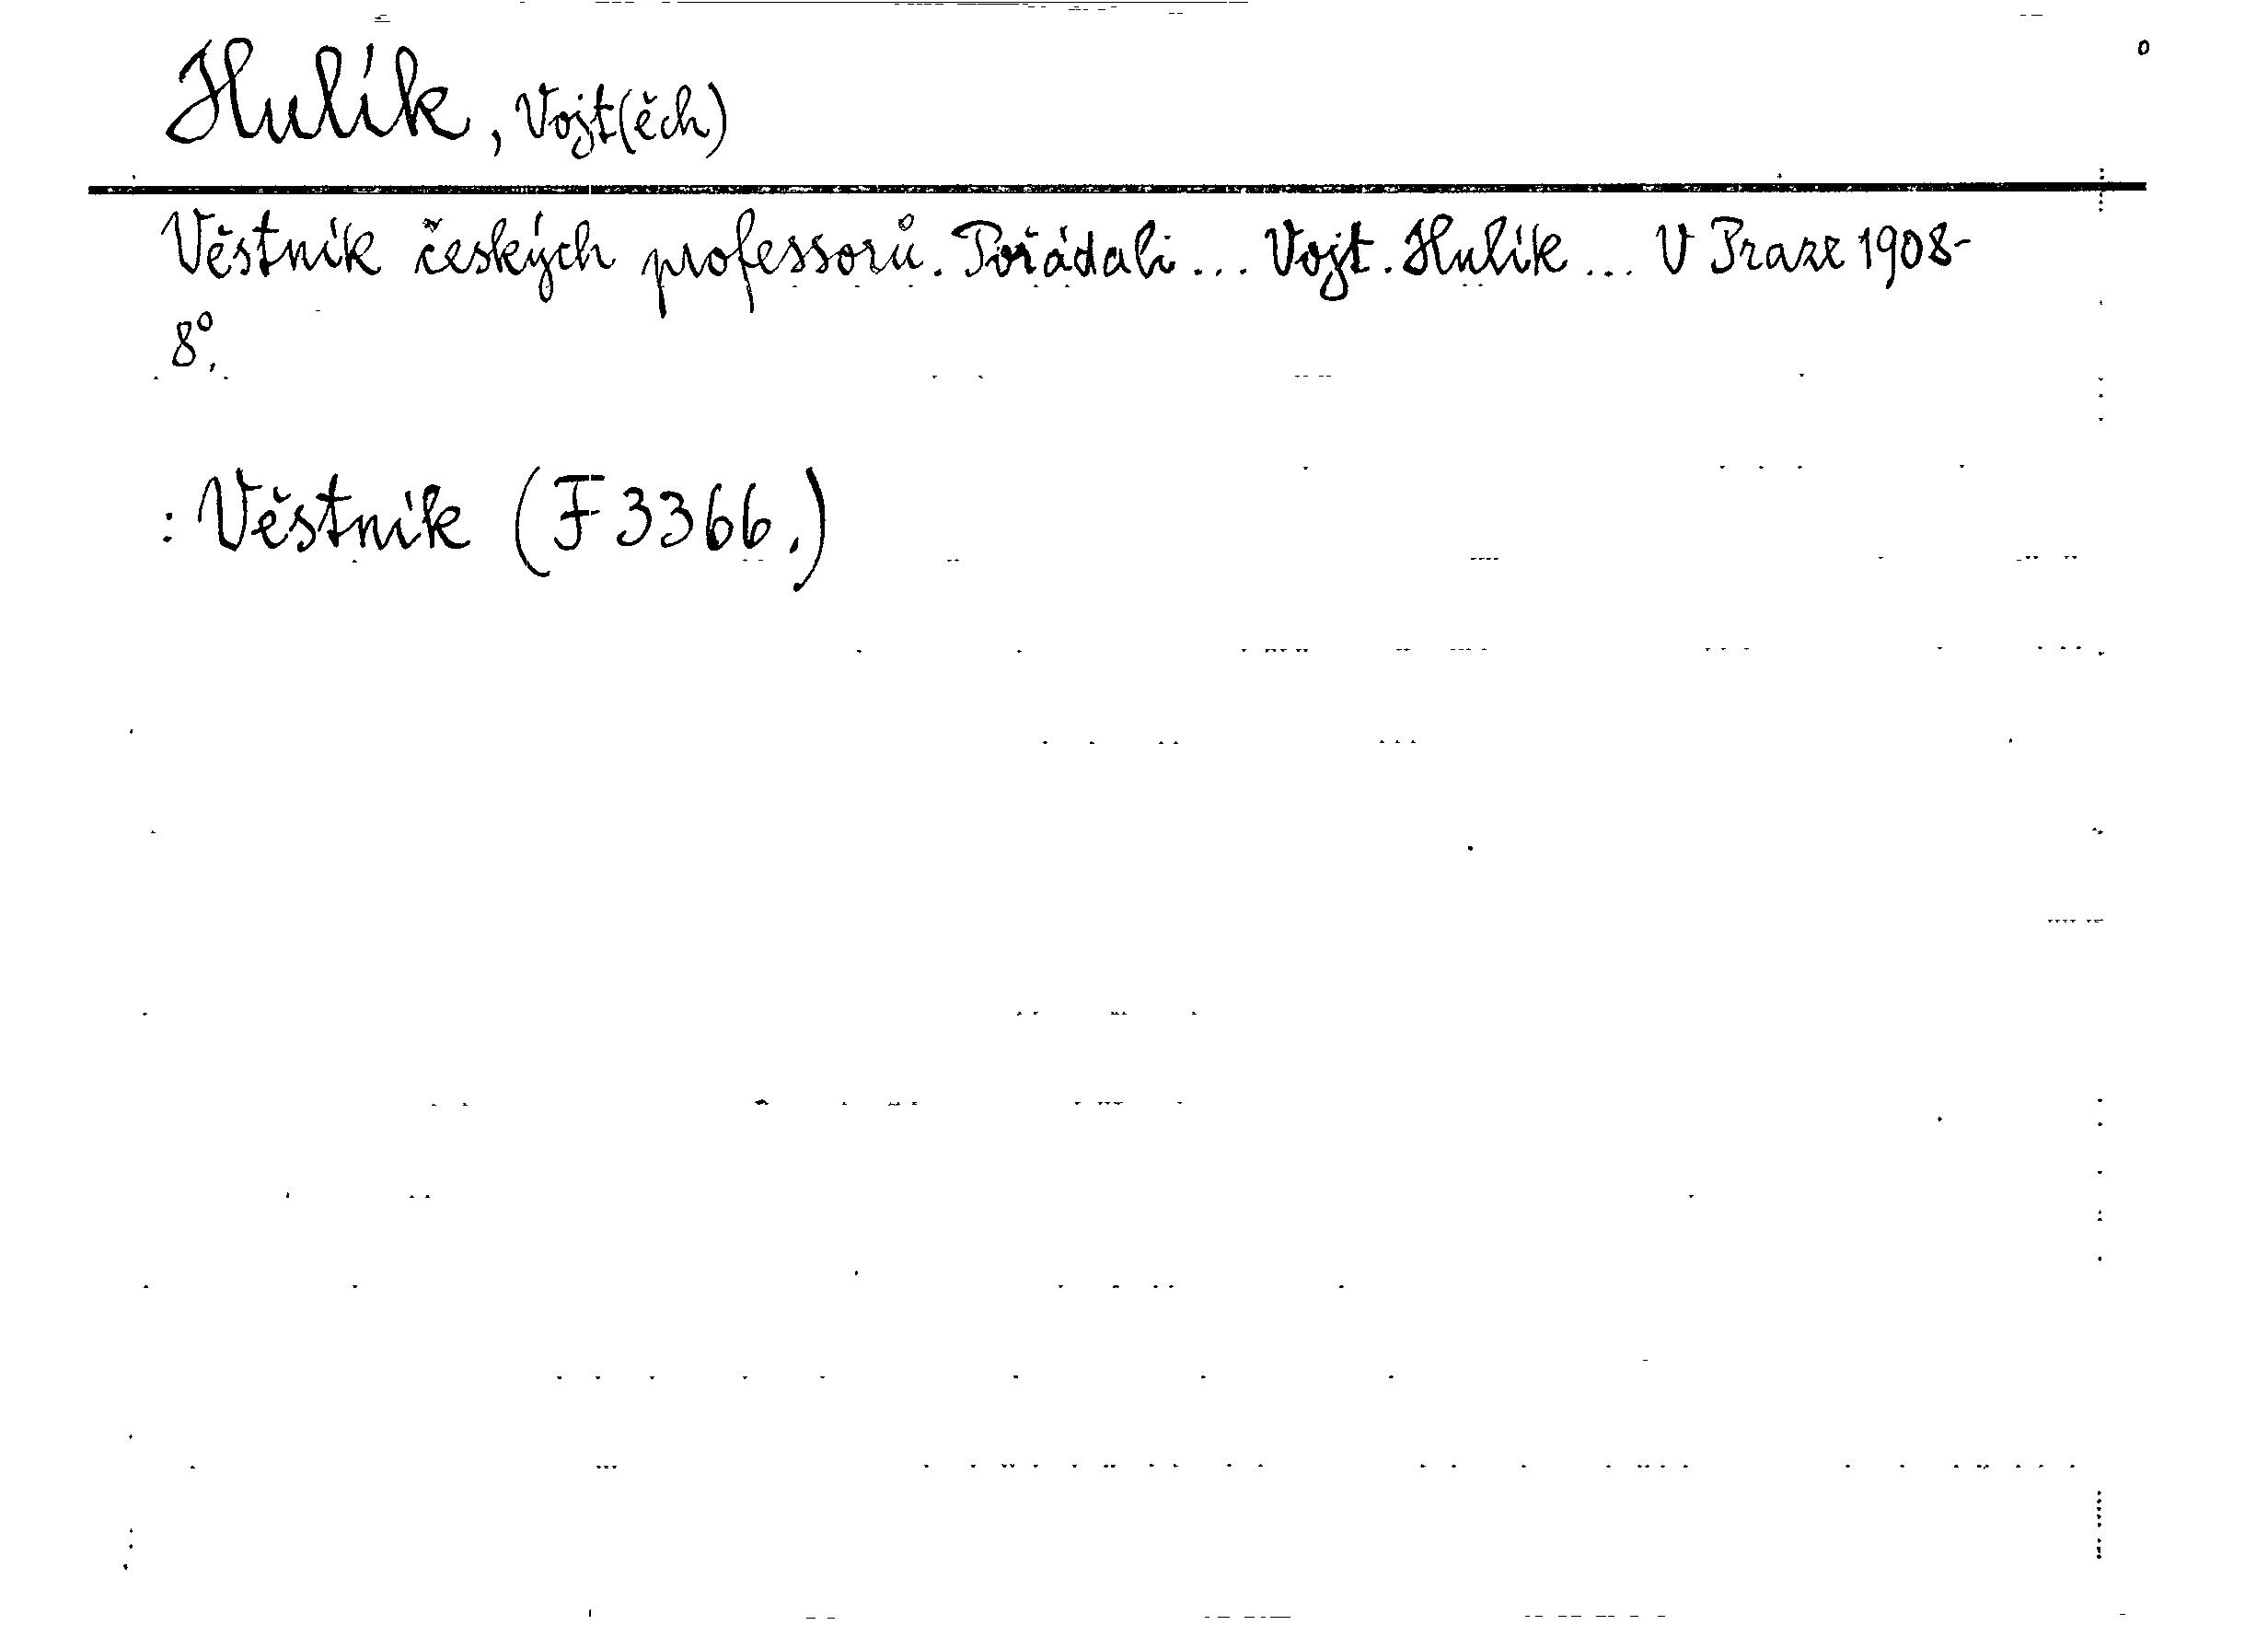 Hulík, Vojt(ěch)
Věstník českých professorů. Pořádali... Vojt. Hulík... V Praze 1908-
8°.
: Věstník (F 3366.)